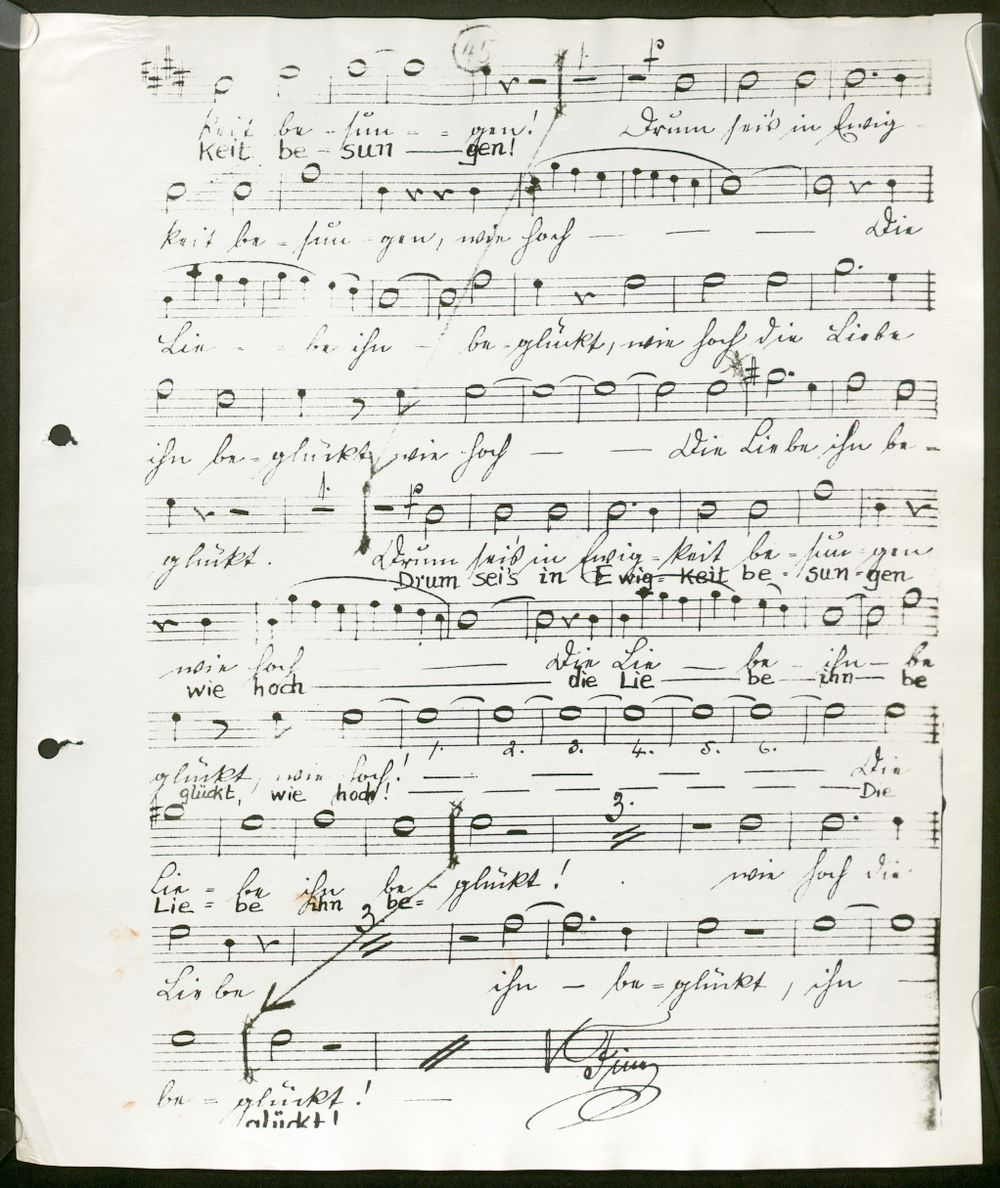 45
1.
keit be - sun - - gen! Drum sei's in Ewig
keit be - sun — gen!
keit be - sun - gen, wie hoch — — — Die
Lie - - be ihn - be - glückt, wie hoch die Liebe
ihn be - glückt, wie hoch — — Die Liebe ihn be -
1.
glückt. Drum sei's in Ewig - keit be - sun - gen
Drum sei's in Ewig - keit be - sun - gen
wie hoch — — — Die Lie — be - ihn — be
wie hoch — die Lie — be - ihn — be
1. 2. 3. 4. 5. 6.
glückt, wie hoch! — — — — — — Die
glückt, wie hoch! — — — — — — Die
3.
Lie = be ihn be - glückt! wie hoch die
Lie = be ihn be =
3.
Liebe ihn — be = glückt, ihn —
Fine
be = glückt! —
glückt!